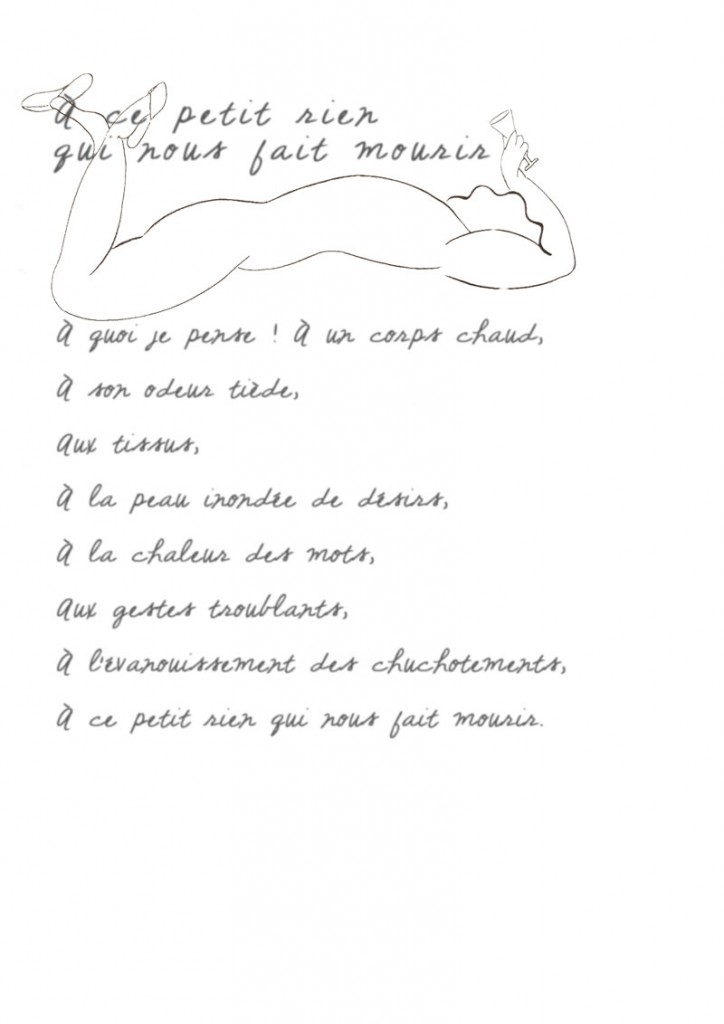 À ce petit rien
qui nous fait mourir
À quoi je pense ! À un corps chaud,
À son odeur tiède,
Aux tissus,
À la peau inondée de désirs,
À la chaleur des mots,
Aux gestes troublants,
À l'évanouissement des chuchotements,
À ce petit rien qui nous fait mourir.